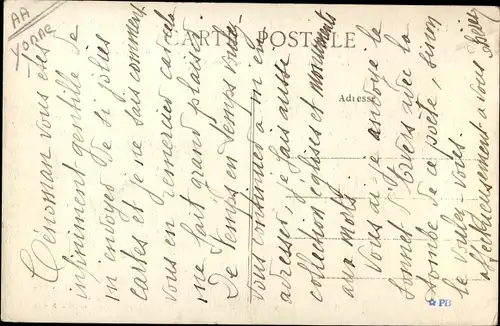 AA
Yonne
CARTE POSTALE
Adresse
Cénoman vous êtes
infiniment gentille de
m'envoyer de si jolies
cartes et je ne sais comment
vous en remercier car cela
me fait grand plaisir
De temps en temps voulez
vous continuer à m'en
adresser je fais aussi
collection églises et monuments
aux morts.
Vous ai-je envoyé le
sonnet d'Arvers avec la
tombe de ce poète, sinon
le voulez voici
affectueusement à vous
PB